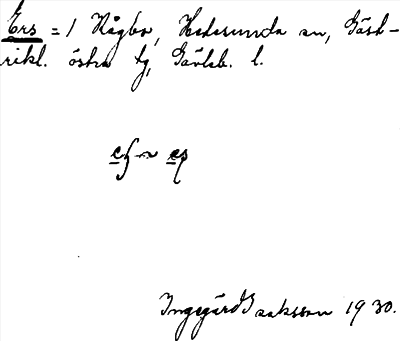 Ers = 1 Hågbo, Hedesunda sn, Gäst-
rikl. östra tg, Gävleb. l.
Ingegärd Isaksson 1930.